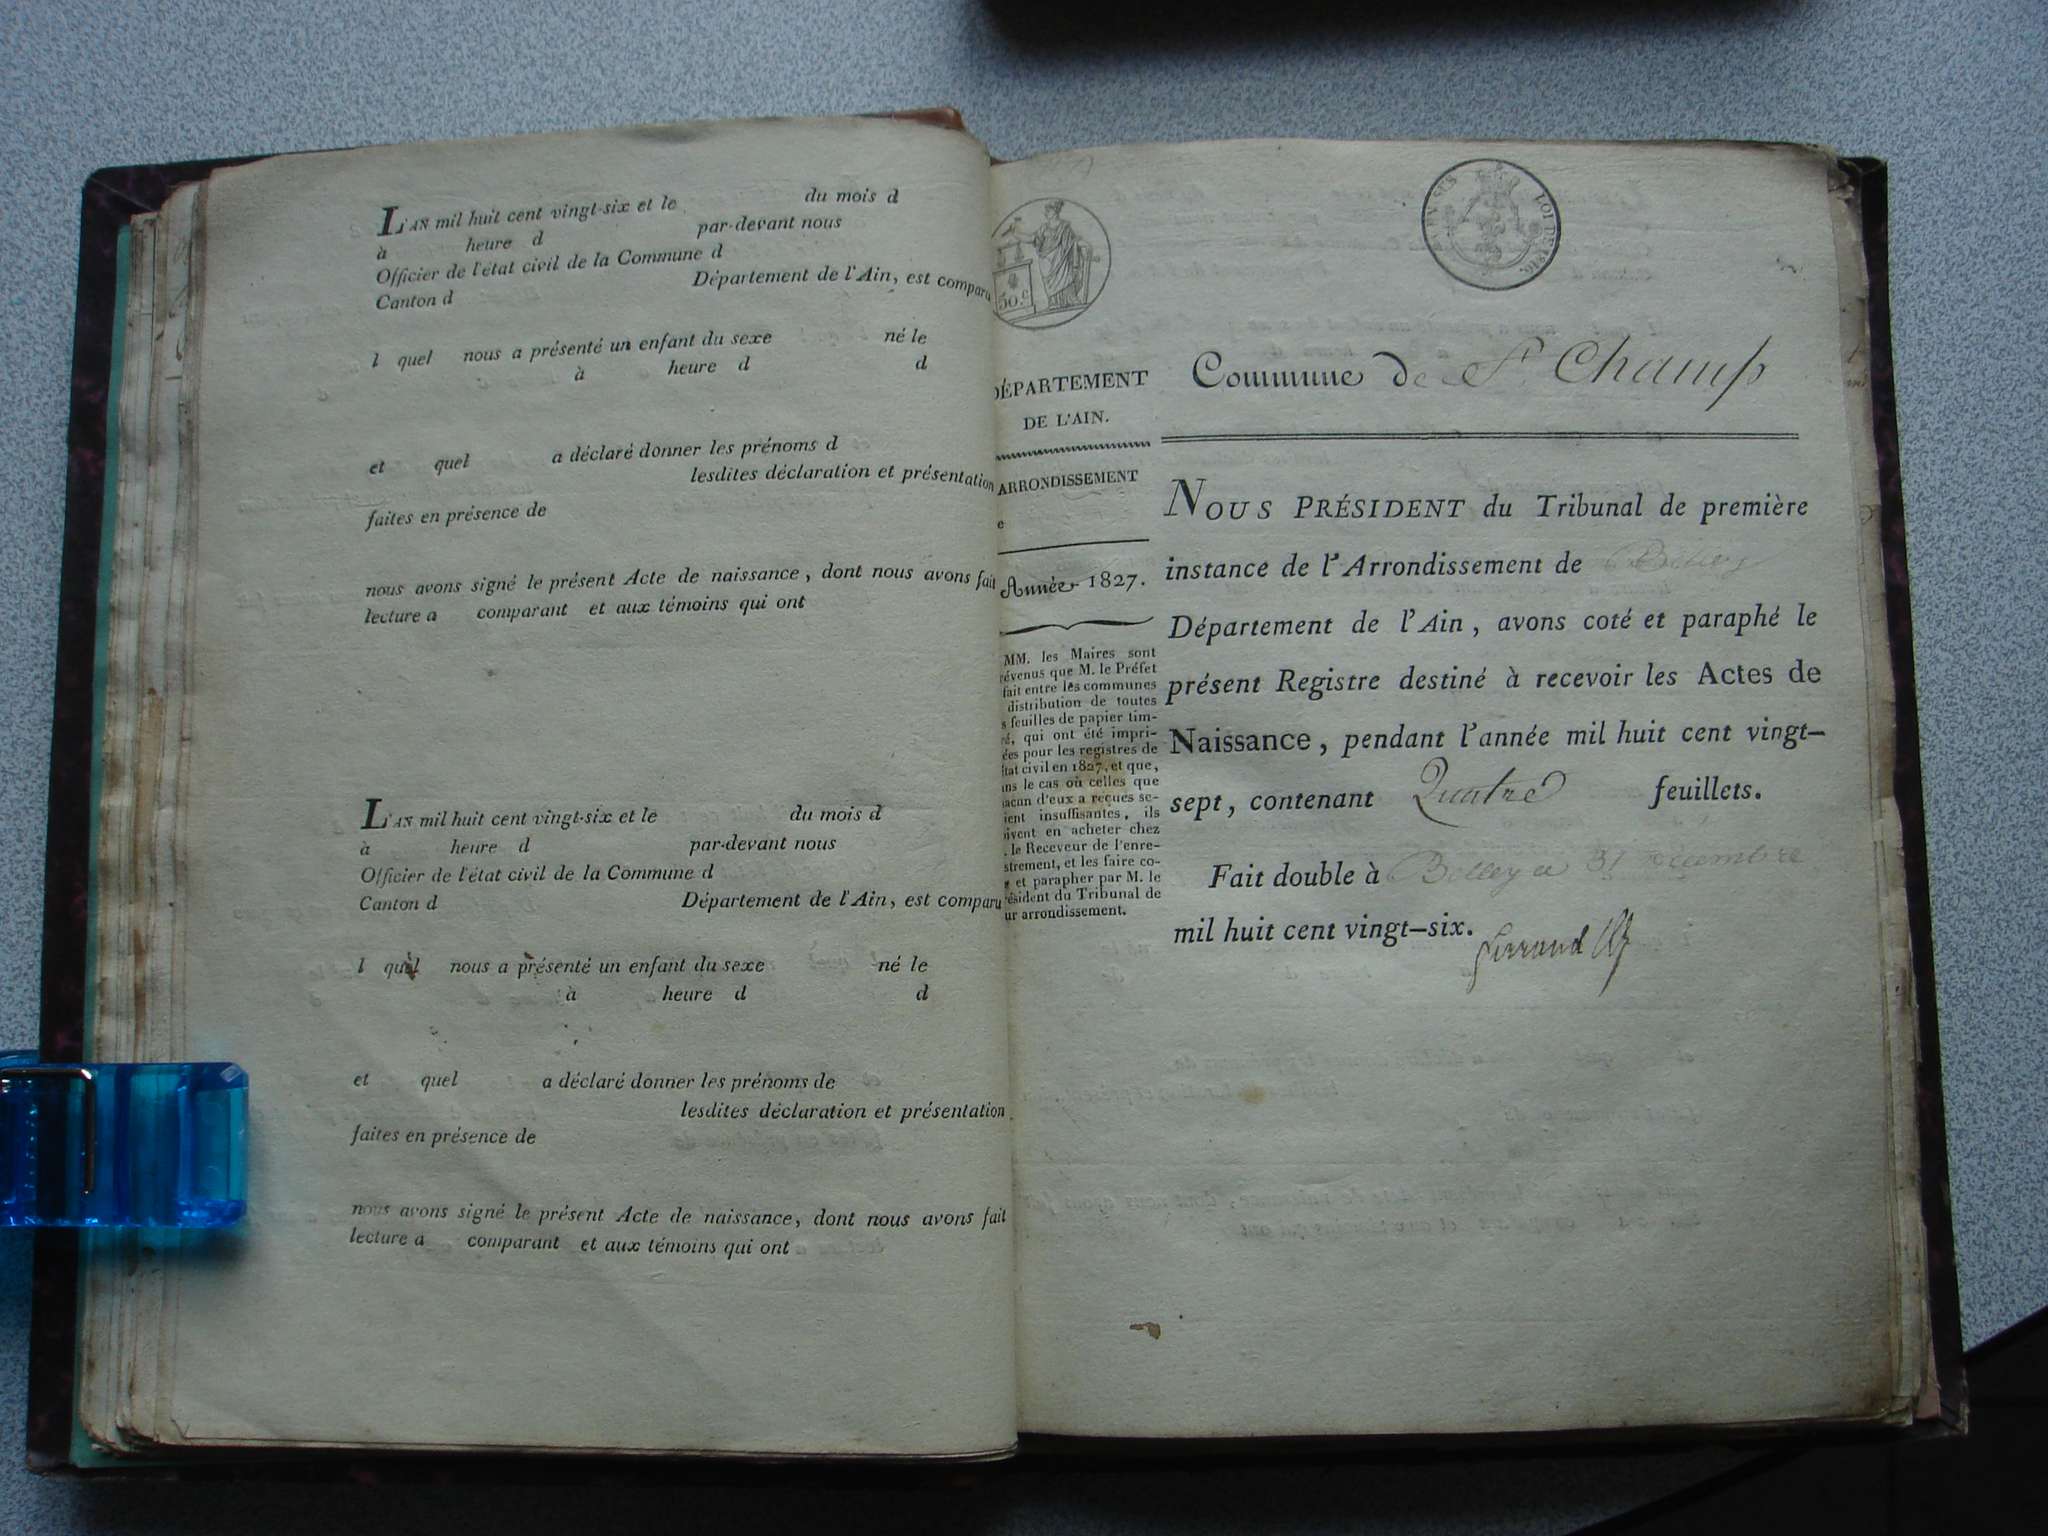 L'AN mil huit cent vingt-six et le du mois d
à heure d par-devant nous
Officier de l'état civil de la Commune d
Canton d Département de l'Ain, est comparu
l quel nous a présenté un enfant du sexe né le
à heure d d
et quel a déclaré donner les prénoms d
lesdites déclaration et présentation
faites en présence de
nous avons signé le présent Acte de naissance, dont nous avons fait
lecture a comparant et aux témoins qui ont
L'AN mil huit cent vingt-six et le du mois d
à heure d par-devant nous
Officier de l'état civil de la Commune d
Canton d Département de l'Ain, est comparu
l quel nous a présenté un enfant du sexe né le
à heure d d
et quel a déclaré donner les prénoms de
lesdites déclaration et présentation
faites en présence de
nous avons signé le présent Acte de naissance, dont nous avons fait
lecture a comparant et aux témoins qui ont
50 c
LOI DE 1816.
DÉPARTEMENT
DE L'AIN.
ARRONDISSEMENT
e
Année 1827.
MM. les Maires sont
évenus que M. le Préfet
fait entre les communes
distribution de toutes
s feuilles de papier tim-
é, qui ont été impri-
ées pour les registres de
état civil en 1827, et que,
ns le cas où celles que
acun d'eux a reçues se-
ient insuffisantes, ils
oivent en acheter chez
. le Receveur de l'enre-
strement, et les faire co-
r et parapher par M. le
ésident du Tribunal de
ur arrondissement.
Commune de St Champ
NOUS PRÉSIDENT du Tribunal de première
instance de l'Arrondissement de Belley
Département de l'Ain, avons coté et paraphé le
présent Registre destiné à recevoir les Actes de
Naissance, pendant l'année mil huit cent vingt-
sept, contenant Quatre feuillets.
Fait double à Belley le 31 décembre
mil huit cent vingt-six.